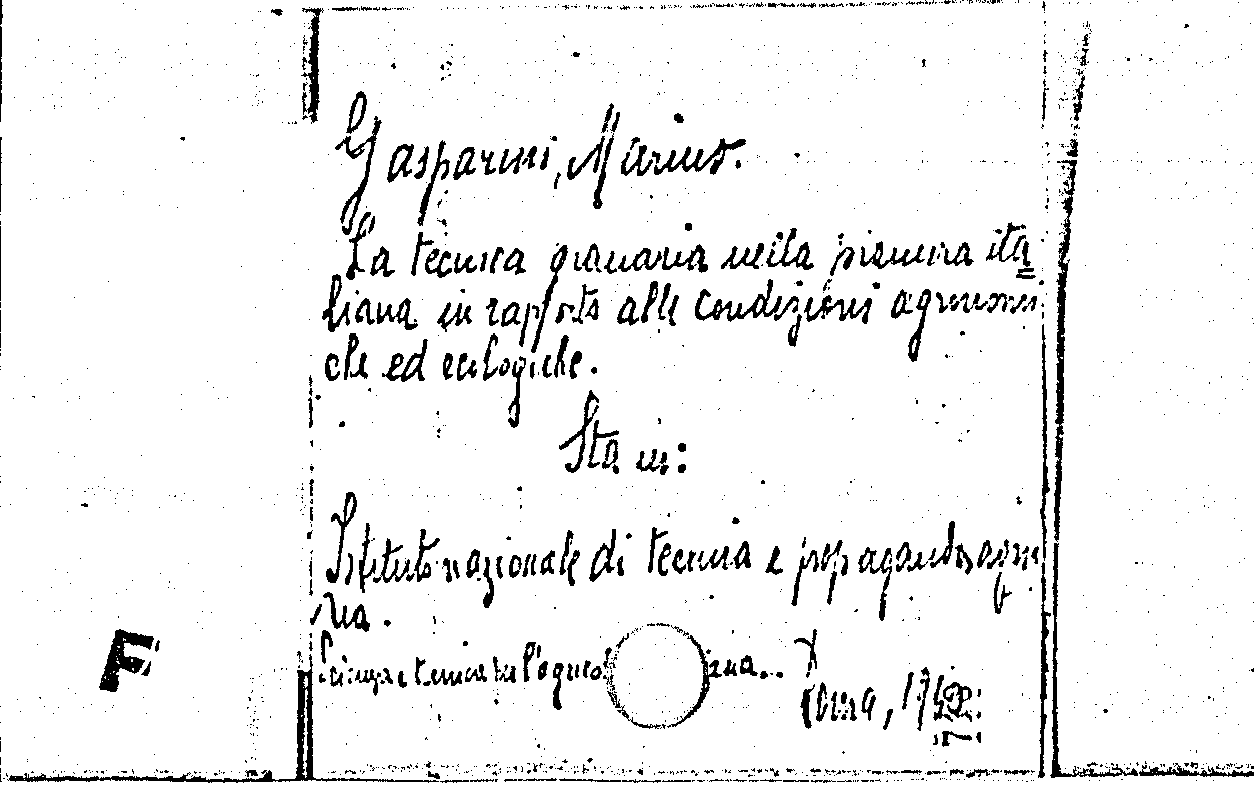 Gasparini, Marino.
La tecnica granaria nella pianura ita
liana in rapporto alle condizioni agronomi
che ed ecologiche.
Sta in:
Istituto nazionale di tecnica e propaganda agra
ria.
Scienza e tecnica nell'agricol iana..
Roma, 1942
F